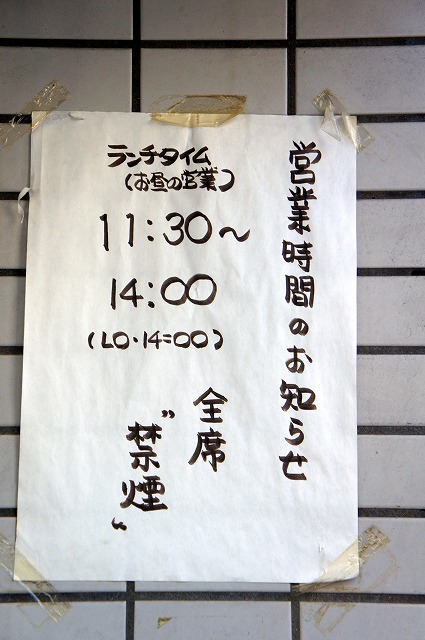 営業時間のお知らせ
ランチタイム
(お昼の営業)
11:30〜
14:00
(LO・14:00)
全席
"禁煙"